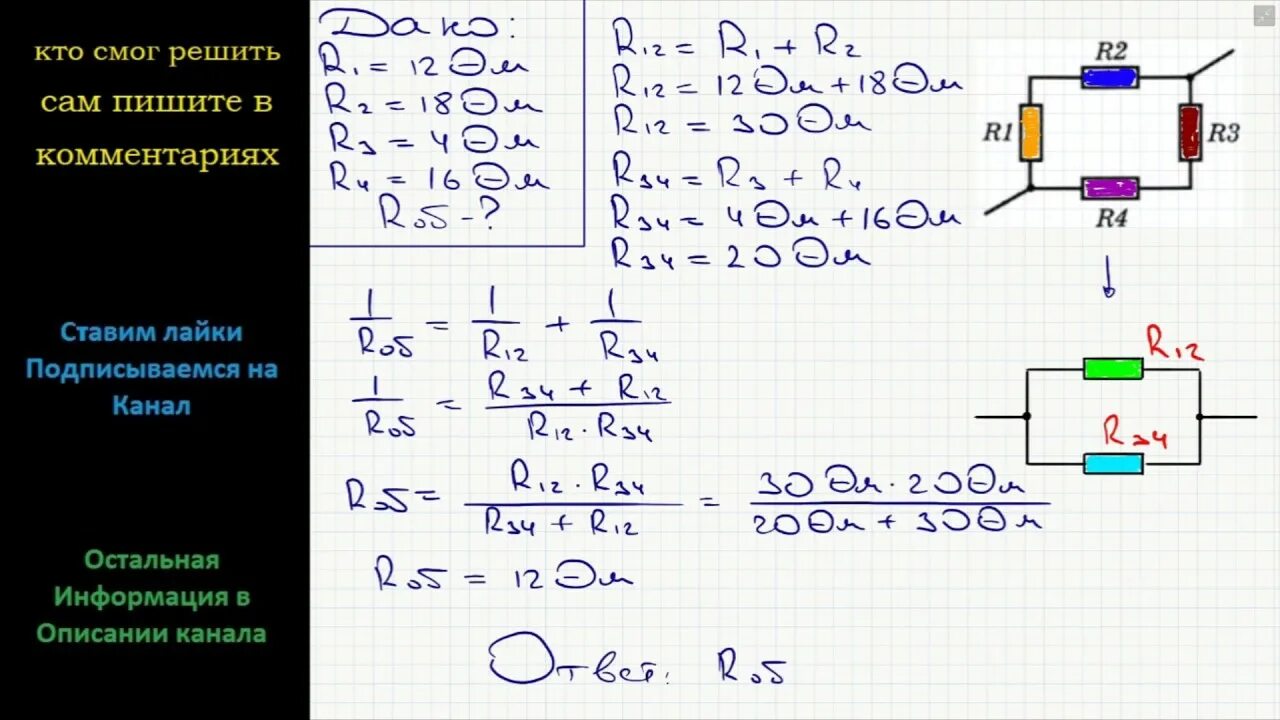 кто смог решить
сам пишите в
комментариях
Ставим лайки
Подписываемся на
Канал
Остальная
Информация в
Описании канала
Дано:
R₁ = 12 Ом
R₂ = 18 Ом
R₃ = 4 Ом
R₄ = 16 Ом
Rоб - ?
R₁₂ = R₁ + R₂
R₁₂ = 12 Ом + 18 Ом
R₁₂ = 30 Ом
R₃₄ = R₃ + R₄
R₃₄ = 4 Ом + 16 Ом
R₃₄ = 20 Ом
R2
R1
R3
R4
R₁₂
R₃₄
1/Rоб = 1/R₁₂ + 1/R₃₄
1/Rоб = (R₃₄ + R₁₂)/(R₁₂ · R₃₄)
Rоб = (R₁₂ · R₃₄)/(R₃₄ + R₁₂) = (30 Ом · 20 Ом)/(20 Ом + 30 Ом)
Rоб = 12 Ом
Ответ: Rоб